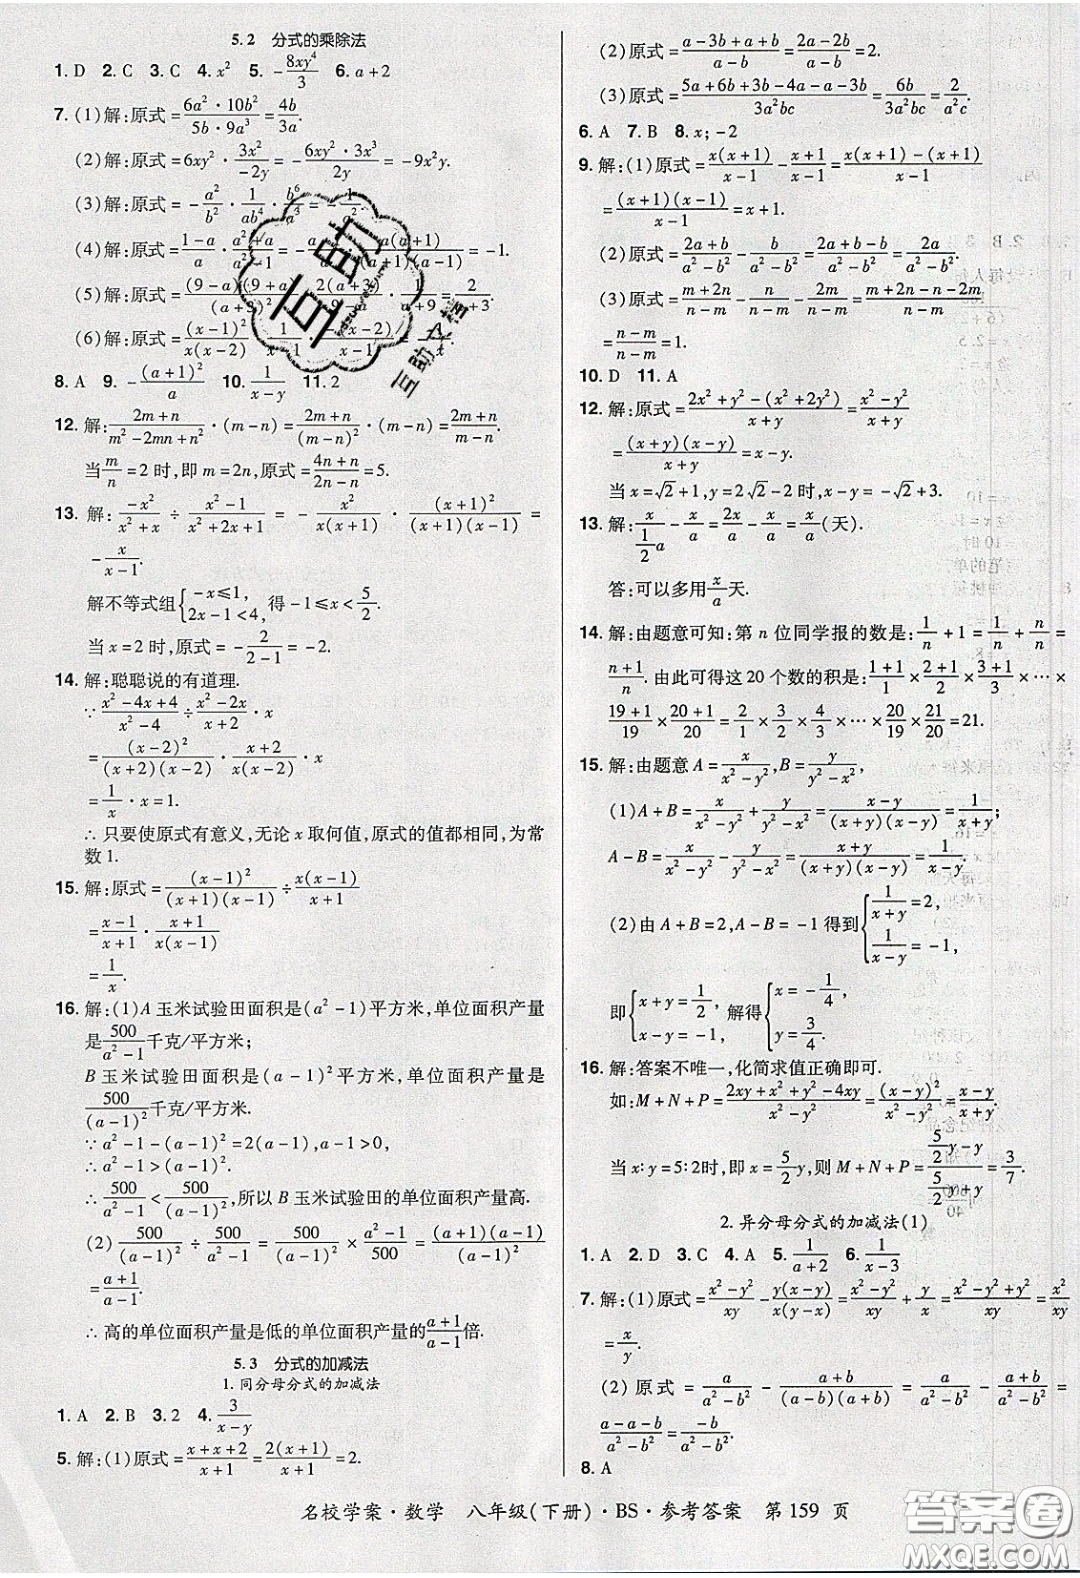 5.2 分式的乘除法
1. D 2. C 3. C 4. x² 5. -8xy⁴/3 6. a+2
7. (1)解:原式=6a²·10b²/5b·9a³=4b/3a.
(2)解:原式=6xy²·3x²/-2y=-6xy²·3x³/2y=-9x²y.
(3)解:原式=-a²/b²·1/ab⁴·b⁶/
(4)解:原式=1-a/a·a²+a/ a(a+1)/ =-1.
(5)解:原式=(9-a)(9+a)/(a+3)²·2(a+3)/ ·a+1/a+9=2/a+3.
(6)解:原式=(x-1)²/x(x-2)·1/x-1
8. A 9. -(a+1)²/a 10. 1/x-y 11. 2
12. 解:2m+n/m²-2mn+n²·(m-n)=2m+n/(m-n)²·(m-n)=2m+n/m-n.
当m/n=2时,即m=2n,原式=4n+n/2n-n=5.
13. 解:-x²/x²+x÷x²-1/x²+2x+1=-x²/x(x+1)·(x+1)²/(x+1)(x-1)=
-x/x-1.
解不等式组{-x≤1, 2x-1<4, 得-1≤x<5/2.
当x=2时,原式=-2/2-1=-2.
14. 解:聪聪说的有道理.
∵x²-4x+4/x²-4÷x²-2x/x+2·x
=(x-2)²/(x+2)(x-2)·x+2/x(x-2)·x
=1/x·x=1.
∴只要使原式有意义,无论x取何值,原式的值都相同,为常
数1.
15. 解:原式=(x-1)²/(x+1)(x-1)÷x(x-1)/x+1
=x-1/x+1·x+1/x(x-1)
=1/x.
16. 解:(1)A玉米试验田面积是(a²-1)平方米,单位面积产量
是500/a²-1千克/平方米;
B玉米试验田面积是(a-1)²平方米,单位面积产量是
500/(a-1)²千克/平方米.
∵a²-1-(a-1)²=2(a-1),a-1>0,
∴a²-1>(a-1)².
∴500/a²-1<500/(a-1)²,所以B玉米试验田的单位面积产量高.
(2)500/(a-1)²÷500/a²-1=500/(a-1)²×a²-1/500=(a+1)(a-1)/(a-1)²
=a+1/a-1.
∴高的单位面积产量是低的单位面积产量的a+1/a-1倍.
5.3 分式的加减法
1. 同分母分式的加减法
1. A 2. B 3. 2 4. 3/x-y
5. 解:(1)原式=x+x+2/x+1=2(x+1)/x+1=2.
(2)原式=a-3b+a+b/a-b=2a-2b/a-b=2.
(3)原式=5a+6b+3b-4-a-3b/3a²bc=6b/3a²bc=2/a²c.
6. A 7. B 8. x;-2
9. 解:(1)原式=x(x+1)/x-1-x+1/x-1=x(x+1)-(x+1)/x-1
=(x+1)(x-1)/x-1=x+1.
(2)原式=2a+b/a²-b²-b/a²-b²=2a+b-b/a²-b²=2a/a²-b².
(3)原式=m+2n/n-m+n/n-m-2m/n-m=m+2n+n-2m/n-m=
n-m/n-m=1.
10. D 11. A
12. 解:原式=2x²+y²-(x²+2y²)/x+y=x²-y²/x+y
=(x+y)(x-y)/x+y=x-y.
当x=√2+1,y=2√2-2时,x-y=-√2+3.
13. 解:x/½a-x/a=2x/a-x/a=x/a(天).
答:可以多用x/a天.
14. 解:由题意可知:第n位同学报的数是:1/n+1=1/n+n/n=
n+1/n.由此可得这20个数的积是:1+1/1×2+1/2×3+1/3×…×
19+1/19×20+1/20=2/1×3/2×4/3×…×20/19×21/20=21.
15. 解:由题意A=x/x²-y²,B=y/x²-y²,
(1)A+B=x/x²-y²+y/x²-y²=x+y/(x+y)(x-y)=1/x-y;
A-B=x/x²-y²-y/x²-y²=x-y/(x+y)(x-y)=1/x+y.
(2)由A+B=2,A-B=-1得到{1/x+y=2, 1/x-y=-1,
即{x+y=1/2, x-y=-1, 解得{x=-1/4, y=3/4.
16. 解:答案不唯一,化简求值正确即可.
如:M+N+P=2xy+x²+y²-4xy/x²-y²=(x-y)²/x²-y²=x-y/x+y,
当x:y=5:2时,即x=5/2y,则M+N+P=5/2y-y/5/2y+y=3/7.
2. 异分母分式的加减法(1)
1. A 2. D 3. C 4. A 5. 1/a+2 6. 1/x-3
7. 解:(1)原式=x²-y²/xy-y(x-y)/x(y-x)=x²-y²/xy+y/x=x²-y²+y²/xy=x²/xy=
x/y.
(2)原式=a/a²-b²-a+b/(a-b)(a+b)=a/a²-b²-a+b/a²-b²=
a-a-b/a²-b²=-b/a²-b².
8. A
名校学案·数学 八年级(下册)·BS·参考答案 第159页
互助
互助文档
答案圈
MXQE.COM